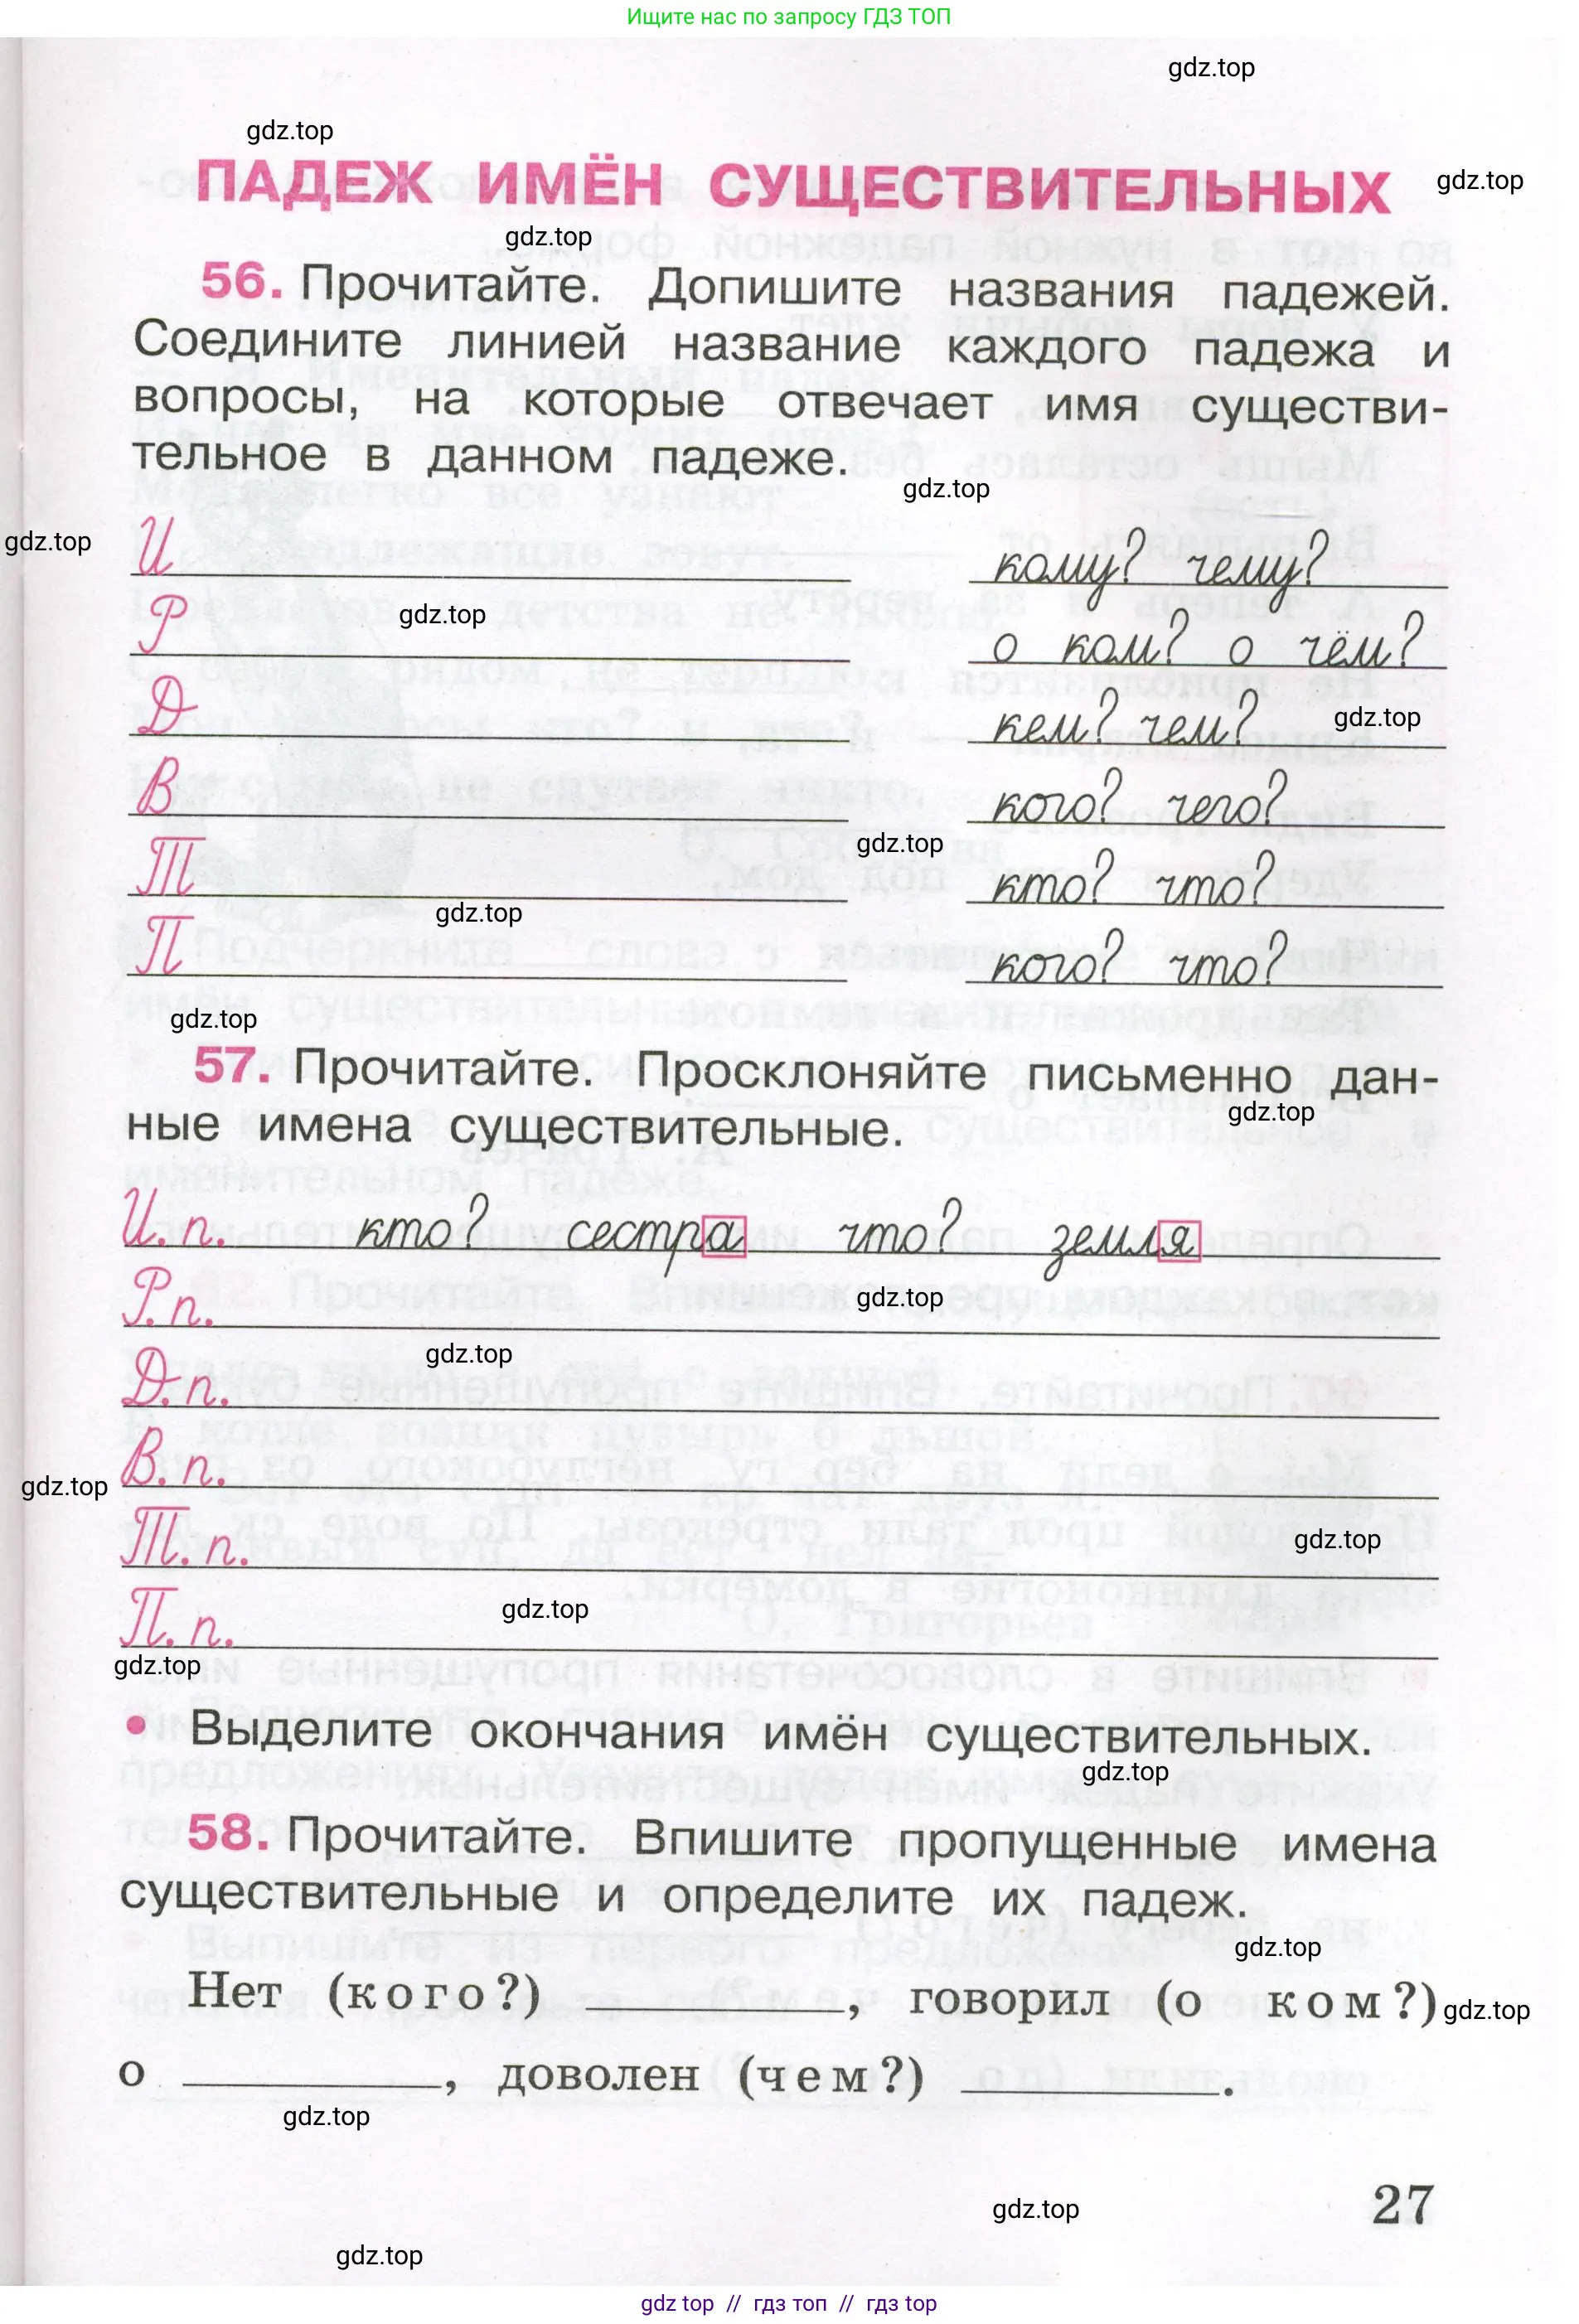 Ищите нас по запросу ГДЗ ТОП
gdz.top
gdz.top
ПАДЕЖ ИМЁН СУЩЕСТВИТЕЛЬНЫХ
gdz.top
gdz.top
56. Прочитайте. Допишите названия падежей.
Соедините линией название каждого падежа и
вопросы, на которые отвечает имя существи-
тельное в данном падеже.
gdz.top
gdz.top
И кому? чему?
Р gdz.top о ком? о чём?
Д кем? чем? gdz.top
В кого? чего?
gdz.top
Т кто? что?
gdz.top
П кого? что?
gdz.top
57. Прочитайте. Просклоняйте письменно дан-
ные имена существительные.
gdz.top
И. п. кто? сестра что? земля
Р. п. gdz.top
gdz.top
Д. п.
В. п.
gdz.top
Т. п. gdz.top
П. п. gdz.top
gdz.top
• Выделите окончания имён существительных.
gdz.top
58. Прочитайте. Впишите пропущенные имена
существительные и определите их падеж.
gdz.top
Нет (кого?) , говорил (о ком?) gdz.top
о , доволен (чем?) .
gdz.top
gdz.top 27
gdz.top
gdz top // гдз топ // гдз top